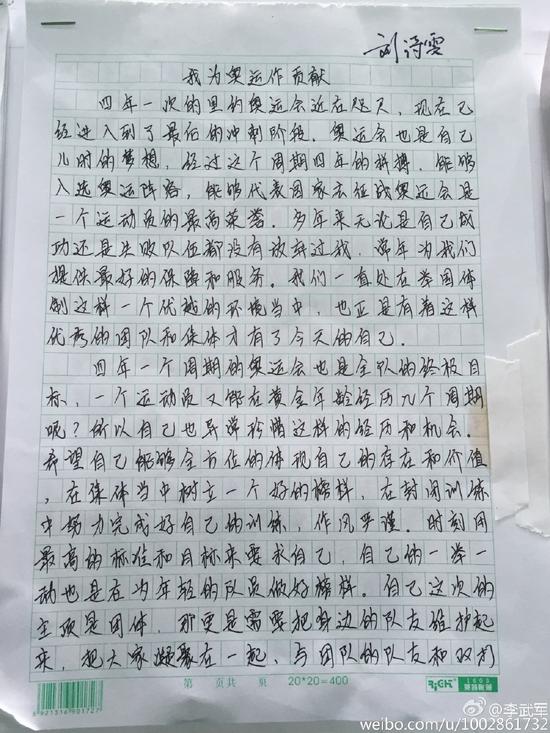 刘诗雯
我为奥运作贡献
四年一次的里约奥运会近在咫尺,现在已
经进入到了最后的冲刺阶段。奥运会也是自己
儿时的梦想,经过这个周期四年的拼搏,能够
入选奥运阵容,能够代表国家去征战奥运会是
一个运动员的最高荣誉。多年来无论是自己成
功还是失败队位都没有放弃过我,常年为我们
提供最好的保障和服务。我们一直处在举国体
制这样一个优越的环境当中,也正是有着这样
优秀的团队和集体才有了今天的自己。
四年一个周期的奥运会也是全队的终极目
标,一个运动员又能在黄金年龄经历几个周期
呢?所以自己也异常珍惜这样的经历和机会。
希望自己能够全方位的体现自己的存在和价值
,在集体当中树立一个好的榜样,在封闭训练
中努力完成好自己的训练,作风严谨。时刻用
最高的标准和目标来要求自己,自己的一举一
动也是在为年轻的队员做好榜样。自己这次的
主项是团体,那更是需要把身边的队友维护起
来,把大家凝聚在一起,与团队的队友和双打
第 页共 页 20*20=400
6921316901727
1605
@李武军
weibo.com/u/1002861732